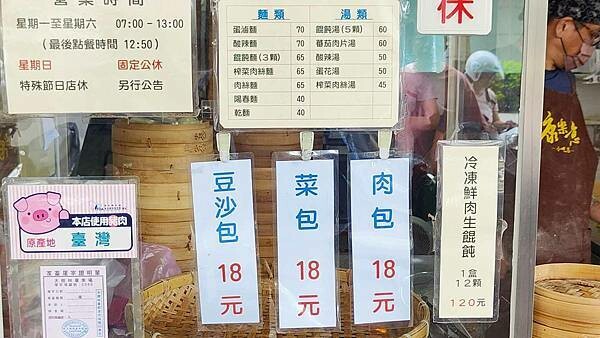 營業時間
星期一至星期六 07:00-13:00
(最後點餐時間 12:50)
星期日 固定公休
特殊節日店休 另行公告
麵類 湯類
蛋滷麵 70 餛飩湯(5顆) 60
酸辣麵 70 蕃茄肉片湯 60
餛飩麵(3顆) 65 酸辣湯 50
榨菜肉絲麵 65 蛋花湯 50
肉絲麵 65 榨菜肉絲湯 45
陽春麵 40
乾麵 40
休
康樂意
豆沙包
18
元
菜包
18
元
肉包
18
元
冷凍鮮肉生餛飩
1盒
12顆
120元
本店使用豬肉
原產地 臺灣